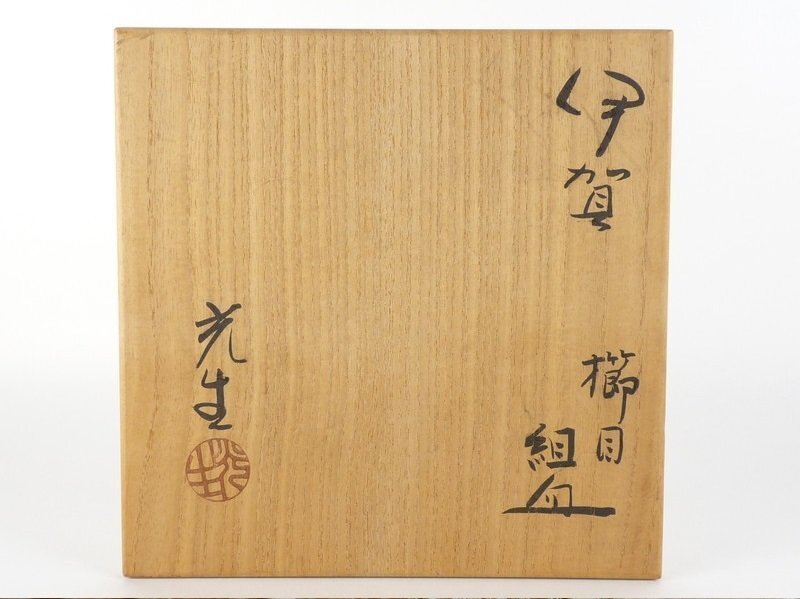 伊賀
櫛目
組皿
光生